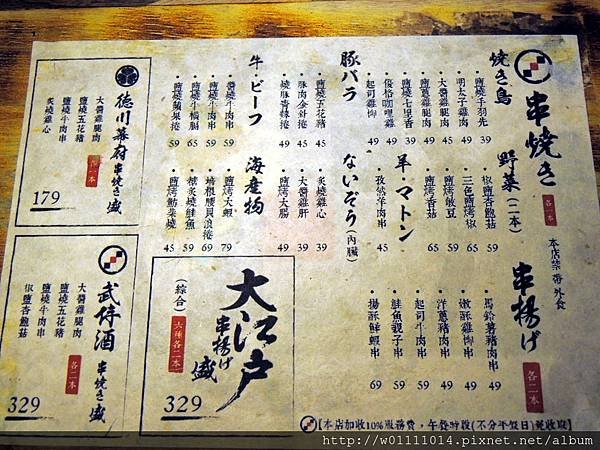 串焼き
各二本
焼き鳥
鹽燒手羽先 39
明太子雞肉 49
大醬雞腿肉 45
鹽蔥雞腿肉 49
鹽燒七里香 39
優格咖哩雞 49
起司雞柳 49
豚バラ
鹽燒五花豬 45
豚肉金針捲 45
燒豚青蔥捲 45
牛・ビーフ
醬燒牛肉串 59
鹽燒牛肉串 59
鹽燒牛橫膈 65
鹽燒蘋果捲 59
野菜(二本)
椒鹽杏鮑菇 59
三色鹽烤椒 65
鹽烤敏豆 59
鹽烤香菇 65
羊・マトン
孜然羊肉串 45
ないぞう(內臟)
炙燒雞心 39
大醬雞肝 39
鹽烤大腸 49
海產物
鹽烤大蝦 79
培根腰貝浪捲 69
糖炙燒鮭魚 65
鹽烤鮪菜燒 45
本店禁帶外食
串揚げ
各二本
馬鈴薯豬肉串 49
嫩酥雞柳串 49
洋蔥豬肉串 49
起司牛肉串 49
鮭魚親子串 69
揚酥鮮蝦串 69
德川幕府 串焼き盛
各一本
大醬雞腿肉
鹽燒五花豬
鹽燒牛肉串
炙燒雞心
179
武侍酒 串焼き盛
各二本
大醬雞腿肉
鹽燒五花豬
鹽燒牛肉串
椒鹽杏鮑菇
329
大江戶
串揚げ盛
(綜合)
六種各二本
329
【本店加收10%服務費,午餐時段(不分平假日)免收取】
http://w01111014.pixnet.net/album